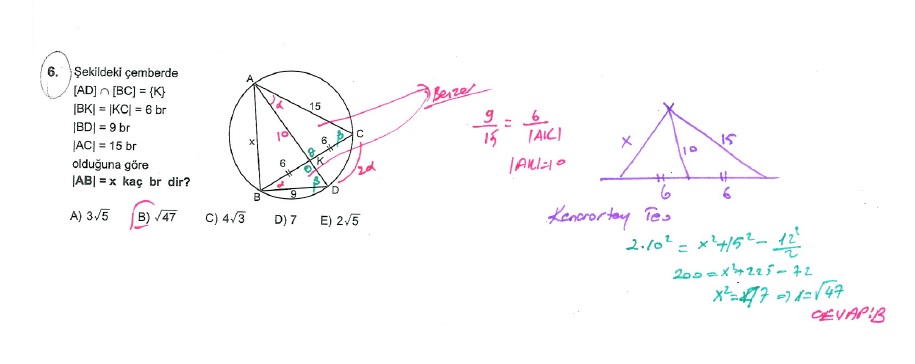 6. Şekildeki çemberde
[AD] ∩ [BC] = {K}
|BK| = |KC| = 6 br
|BD| = 9 br
|AC| = 15 br
olduğuna göre
|AB| = x kaç br dir?
A) 3√5 B) √47 C) 4√3 D) 7 E) 2√5
A
α
15
10
x
6
β
C
θ
6
K
θ
2α
α
β
B
9
D
Benzer
9/15 = 6/|AK|
|AK|=10
x
10
15
6
6
Kenarortay Teo
2.10² = x²+15² − 12²/2
200 = x²+225 − 72
x² = 47 ⇒ x=√47
CEVAP:B